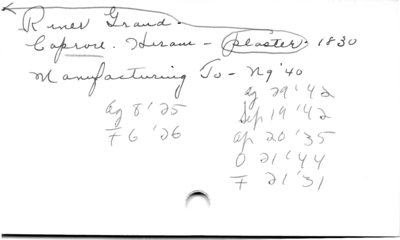 River Grand.
Caprove. Hiram - plaster. 1830
Manufacturing To - Ng '40
Ag 8 '25
F 6 '26
Ag 29 '42
Sep 19 '42
Ap 20 '35
O 21 '44
F 21 '31